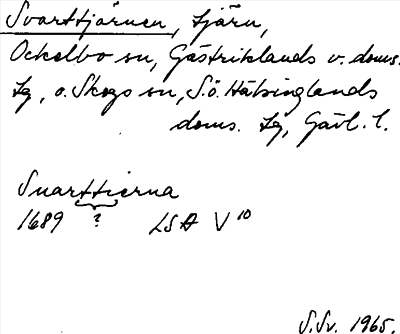 Svarttjärnen, tjärn,
Ockelbo sn, Gästriklands v. doms.
lg, o. Skogs sn, S.ö. Hälsinglands
doms. lg, Gävl. l.
Suarttierna
?
1689 LSA V 10
S.Sv. 1965.